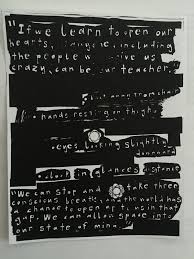 "If we learn to open our
hearts, anyone, including
the people who drive us
crazy, can be our teacher."
hands resting on thighs
eyes looking slightly
downward
a clock in glance's distance
"We can stop and take three
conscious breaths and the world has
a chance to open up in that
gap. We can allow space into
our state of mind."